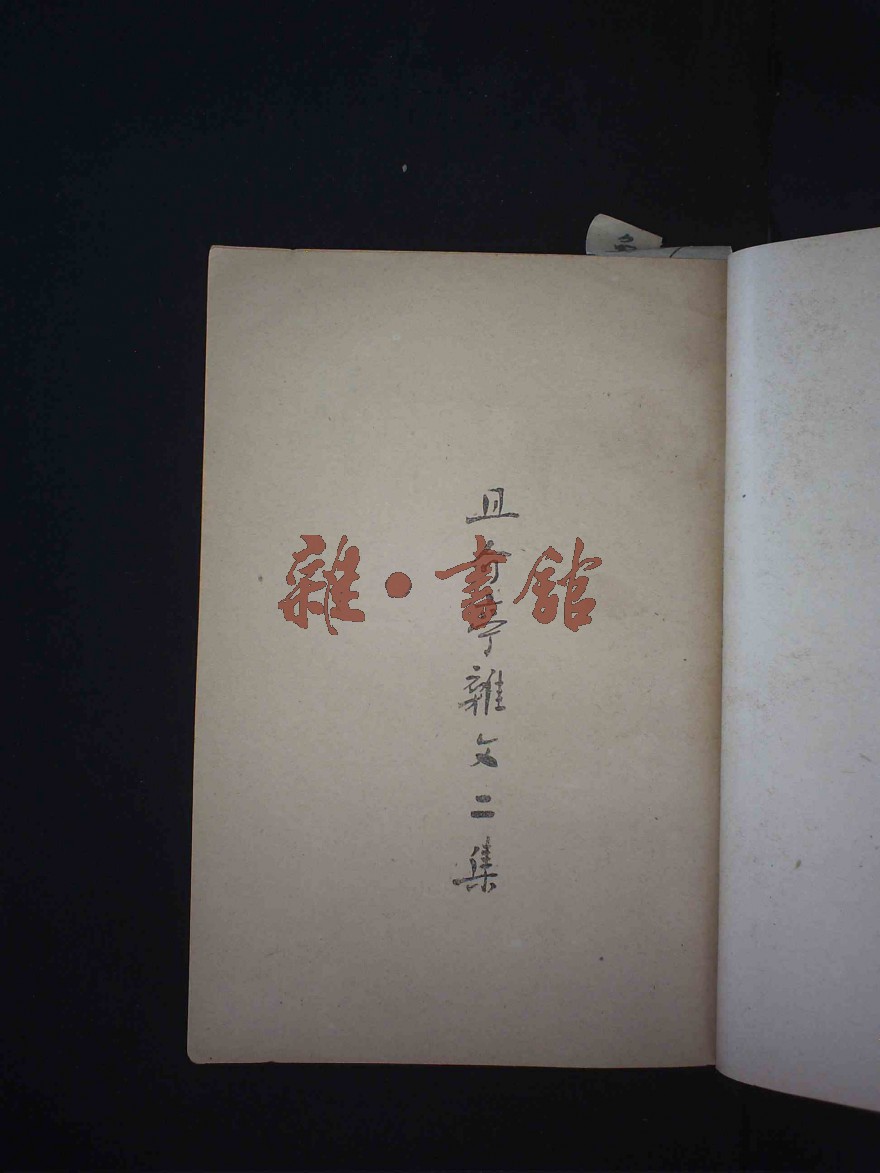 且介亭雜文二集
雜·書館